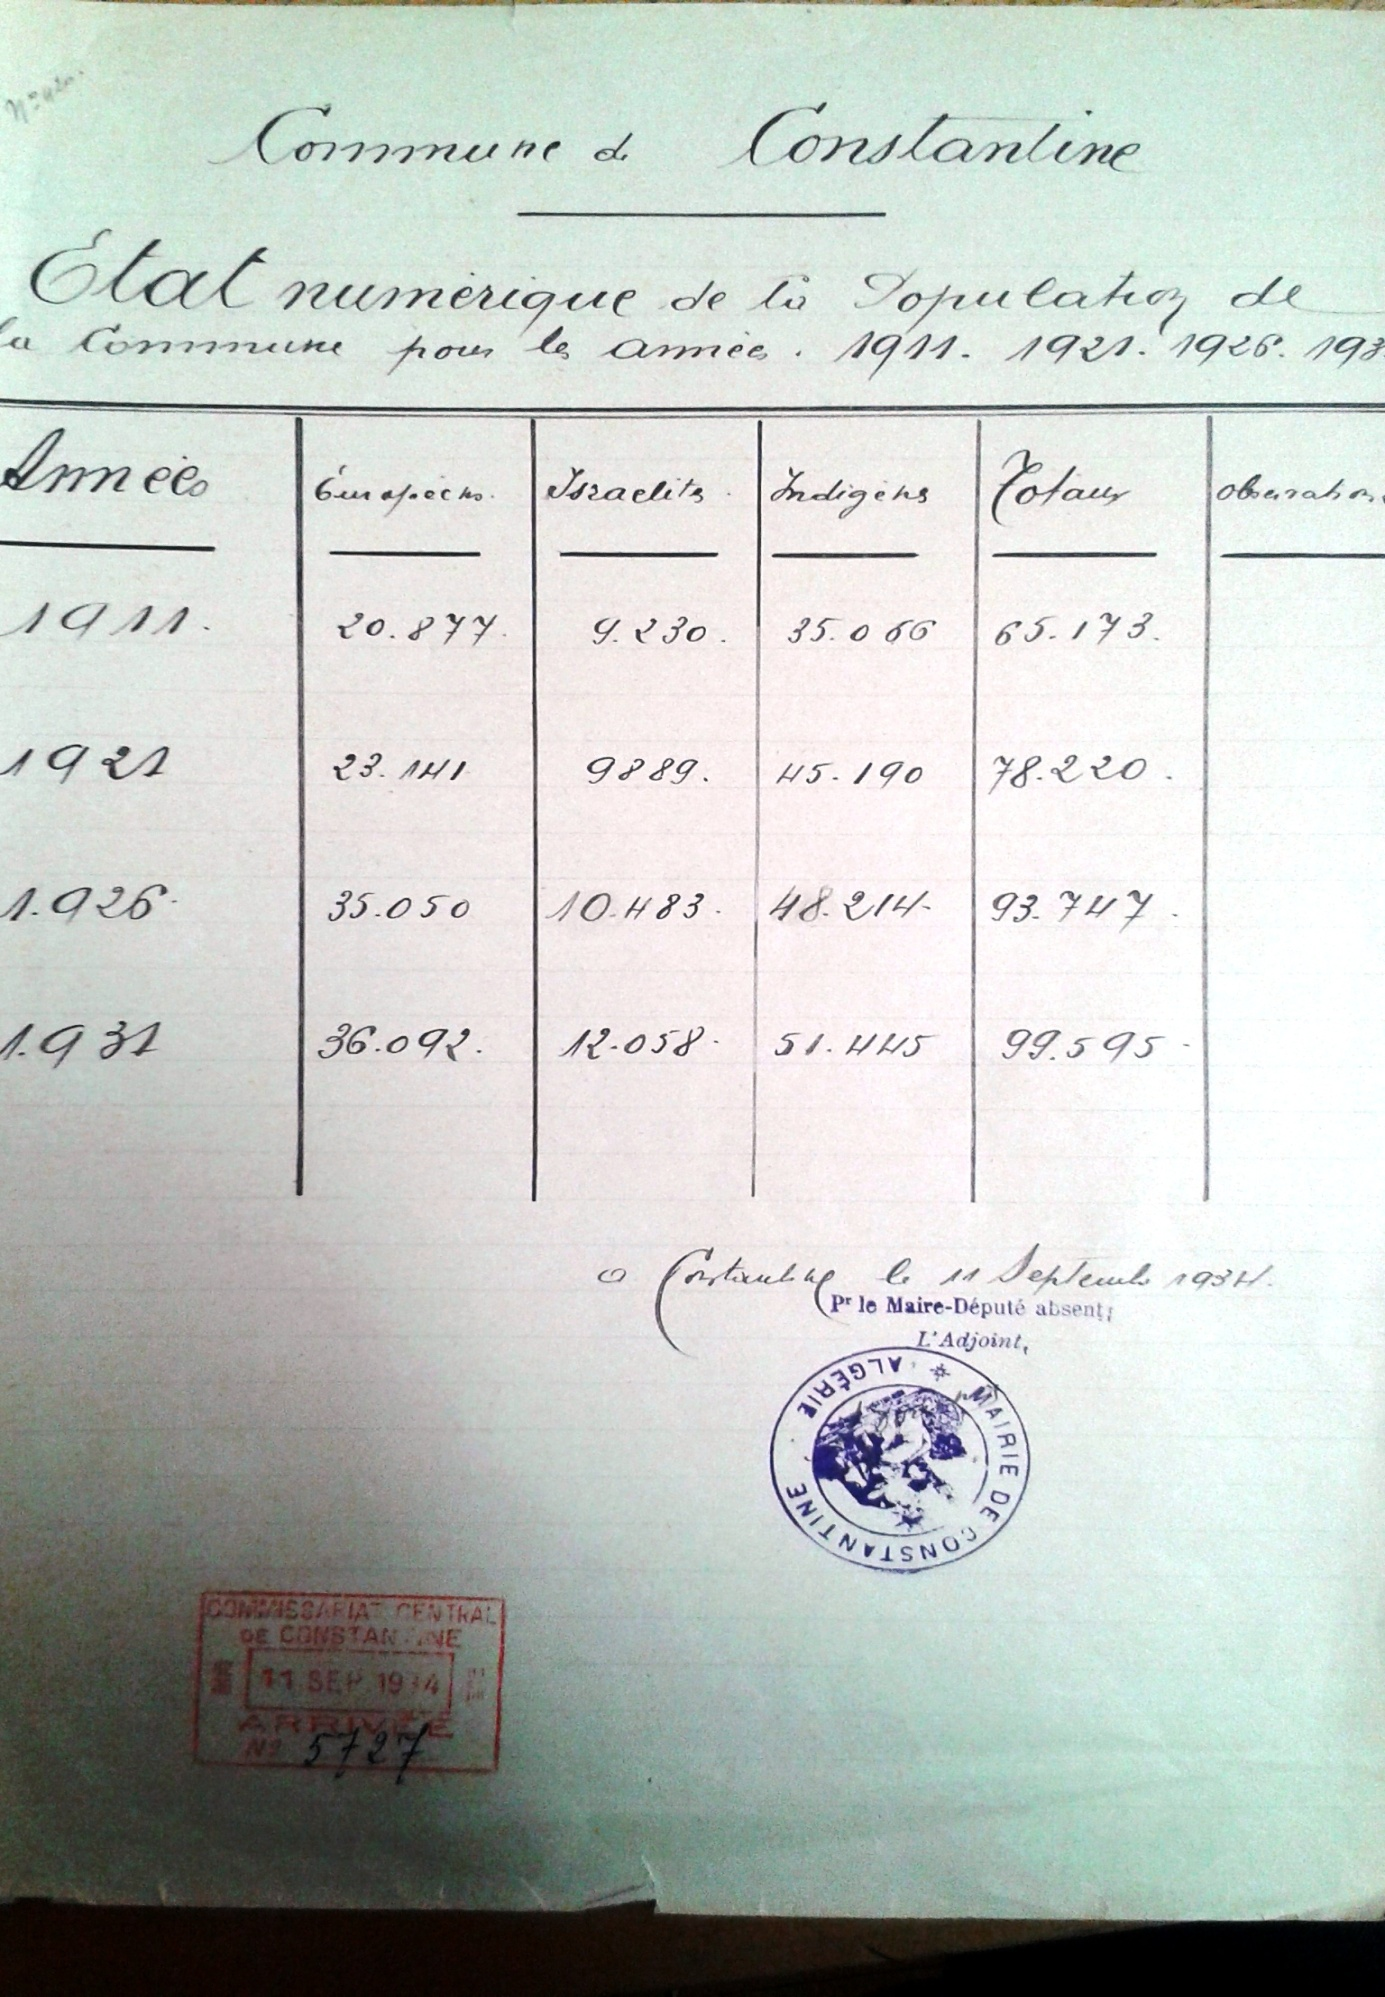 Commune de Constantine
État numérique de la Population de
la Commune pour les années. 1911. 1921. 1926. 193
Années Européens. Israelites. Indigènes Totaux Observations
1911. 20.877. 9.230. 35.066 65.173.
1921 23.141 9889. 45.190 78.220.
1.926. 35.050 10.483. 48.214. 93.747.
1.931 36.092. 12.058. 51.445 99.595.
a Constantine le 11 Septembre 1934.
Pr le Maire-Député absent;
L'Adjoint,
MAIRIE DE CONSTANTINE * ALGÉRIE
COMMISSARIAT CENTRAL
DE CONSTANTINE
11 SEP 1934
ARRIVÉE
No 5727